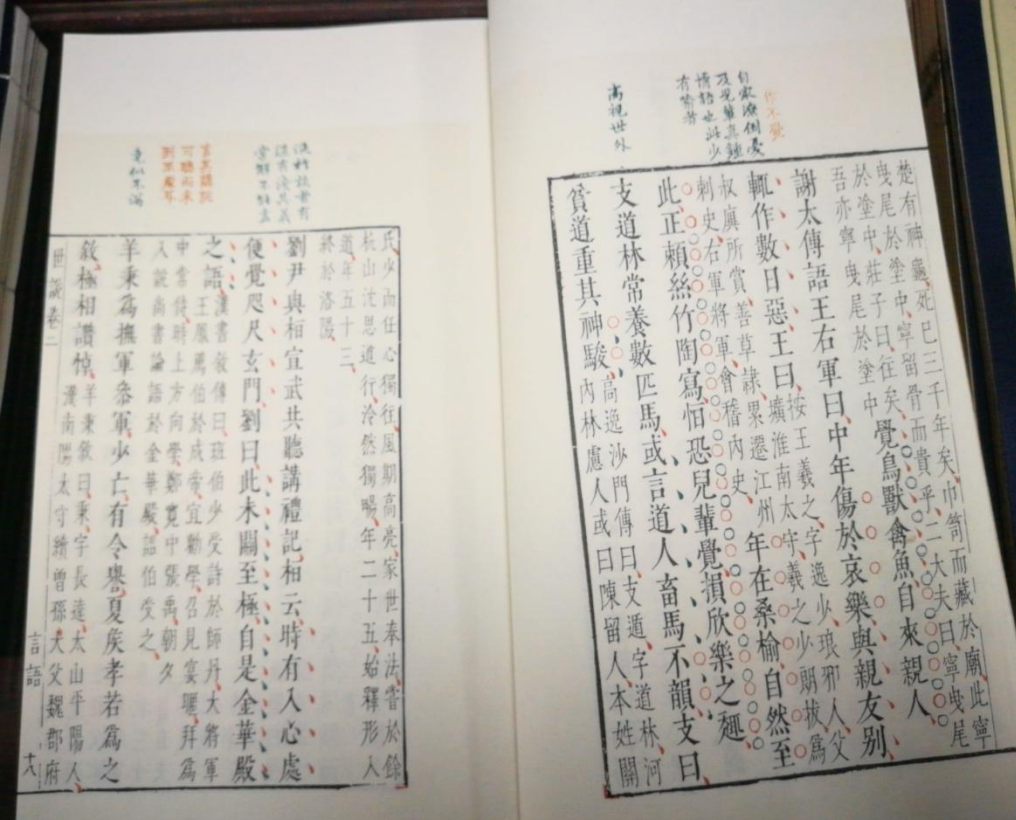 你不覺
自家潦倒憂
及兒輩真鍾
情語也此少
有喻者
高視世外
楚有神龜死已三千年矣巾笥而藏於廟此寧
曳尾於塗中寧留骨而貴乎二大夫曰寧曳尾
於塗中莊子曰往矣
吾亦寧曳尾於塗中
覺鳥獸禽魚自來親人
謝太傅語王右軍曰中年傷於哀樂與親友別
輒作數日惡王曰
按王羲之字逸少琅邪人父
曠淮南太守羲之少朗拔爲
叔廙所賞善草隸累遷江州
刺史右軍將軍會稽內史
年在桑榆自然至
此正賴絲竹陶寫恒恐兒輩覺損欣樂之趣
支道林常養數匹馬或言道人畜馬不韻支曰
貧道重其神駿
高逸沙門傳曰支遁字道林河
內林慮人或曰陳留人本姓關
當解不能言
可聽而未
竟似不滿
氏少而任心獨往風期高亮家世奉法嘗於餘
杭山沈思道行泠然獨暢年二十五始釋形入
道年五十三
終於洛陽
劉尹與桓宣武共聽講禮記桓云時有入心處
便覺咫尺玄門劉曰此未關至極自是金華殿
之語
漢書敘傳曰班伯少受詩於師丹大將軍
王鳳薦伯於成帝宜勸學召見宴暱拜爲
中常侍時上方向學鄭寬中張禹朝夕
入說尚書論語於金華殿詔伯受之
羊秉爲撫軍參軍少亡有令譽夏侯孝若爲之
敘極相讚悼
羊秉敘曰秉字長達太山平陽人
漢南陽太守續曾孫大父魏郡府
世說卷二
言語
十八